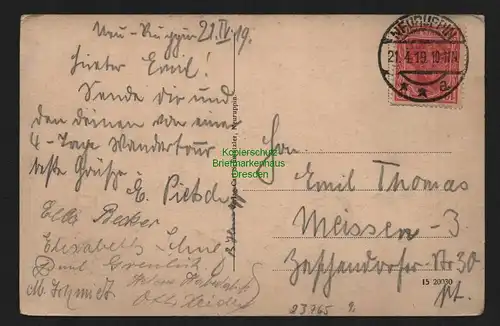 Neu-Ruppin 21.IV.19.
Lieber Emil!
Sende dir und
den deinen von einer
4-Tage Wandertour
beste Grüße.
E. Pietsch
Elli Becker
Elisabeth
M. Schmidt
Otto
NEURUPPIN
21.4.19. 10-11 N.
* * a
Kopierschutz
Briefmarkenhaus
Dresden
Emil Thomas
Meissen-3
Zaschendorfer-Str 30
pt.
15 20030
23765